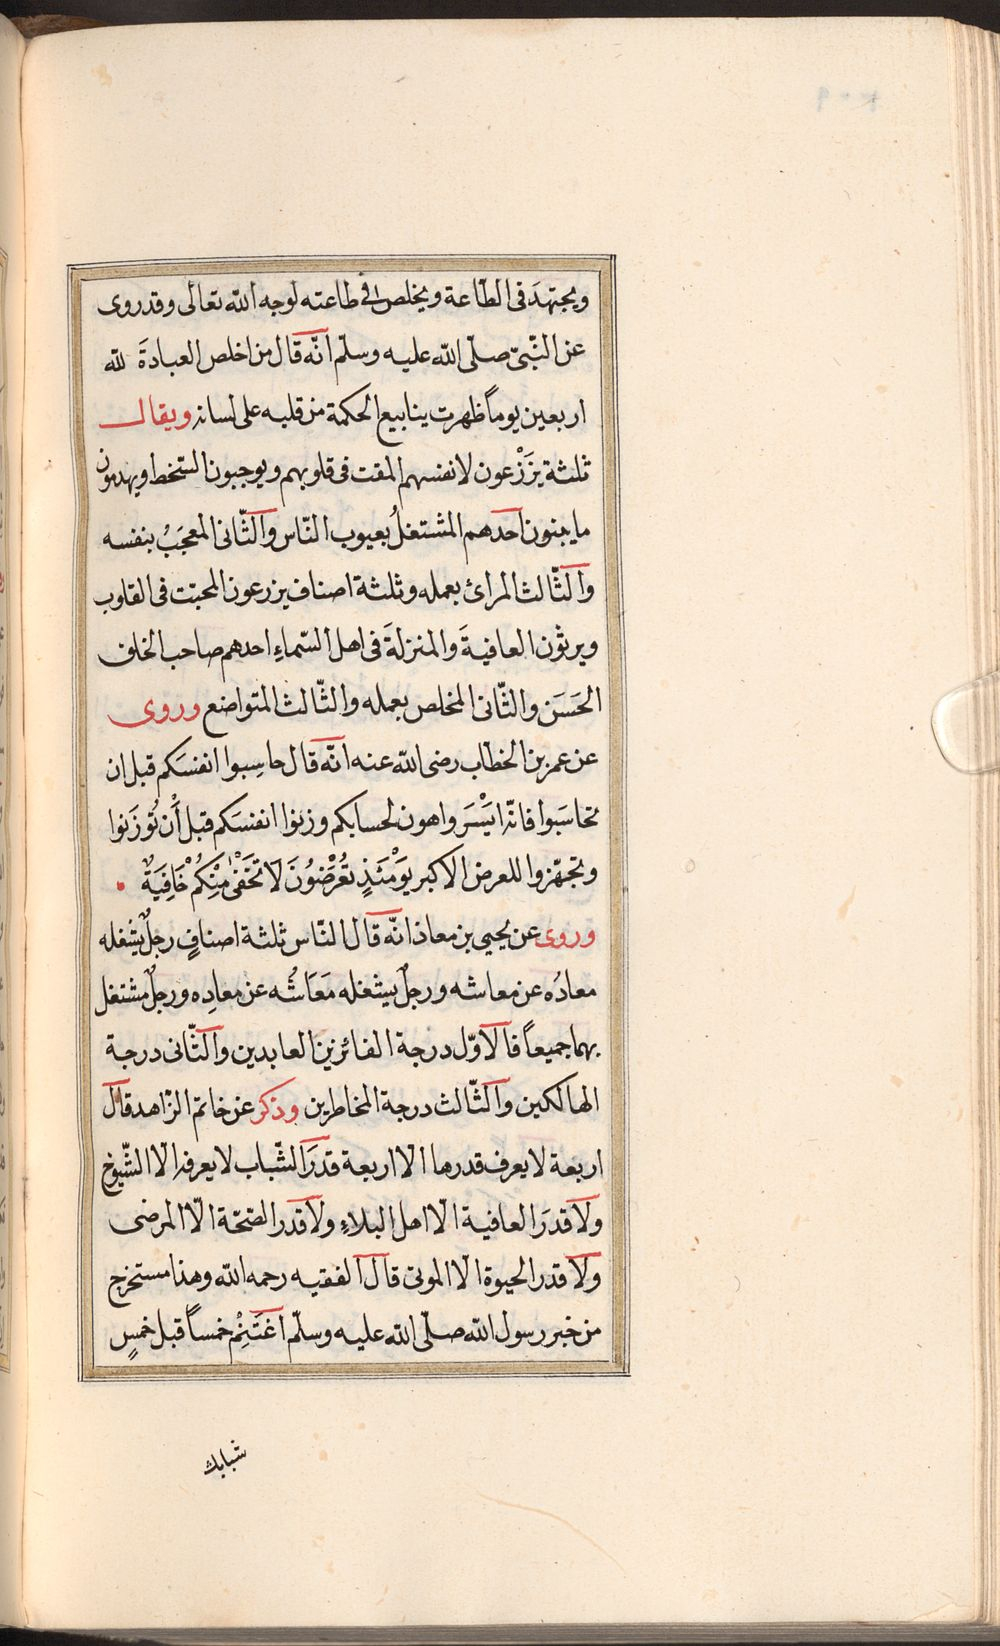 ويجتهدَ فى الطّاعة ويخلص فى طاعته لوجه الله تعالى وقد روى
عن النّبىّ صلّى الله عليه وسلّم انّه قال من اخلص العبادةَ لله
اربعين يوماً ظهرت ينابيع الحكمة من قلبه على لسانه ويقال
ثلثة يَزْرعون لانفسهم المقت فى قلوبهم ويوجبون السّخط ويهدمون
ما يبنون احدهم المشتغلُ بعيوب النّاس والثّانى المعجَبُ بنفسه
والثّالث المرائ بعمله وثلثة اصناف يزرعون المحبّت فى القلوب
ويرثون العافيةَ والمنزلةَ فى اهل السّماءِ احدهم صاحب الخلق
الحَسَن والثّانى المخلص بعمله والثّالث المتواضع وروى
عن عمر بن الخطّاب رضى الله عنه انّه قال حاسِبوا انفسَكم قبل ان
تحاسَبوا فانّه ايْسَر واهون لحسابكم وزِنوا انفسَكم قبل أنْ تُوزَنوا
وتجهّزوا للعرض الاكبر يَوْمَئذٍ تُعْرَضُونَ لَا تَخْفَىٰ مِنْكُمْ خَافِيَةٌ
وروى عن يحيى بن معاذ انّه قال النّاس ثلثة اصنافٍ رجلٌ يشغله
معادُه عن معاشه ورجلٌ يشغله مَعَاشُه عن معادِه ورجلٌ مشتغل
بهما جميعاً فالاوّل درجة الفائزين العابدين والثّانى درجة
الهالكين والثّالث درجة المخاطرين وذكر عن حاتم الزّاهد قال
اربعة لا يعرف قدرها الّا اربعة قدرَ الشّباب لا يعرفه الّا الشّيوخ
ولا قدرَ العافية الّا اهل البلاءِ ولا قدر الصّحّة الّا المرضى
ولا قدر الحيوة الّا الموتى قال الفقيه رحمه الله وهذا مستخرج
من خبر رسول الله صلّى الله عليه وسلّم اغتَنِمْ خمساً قبل خمسٍ
شبابك